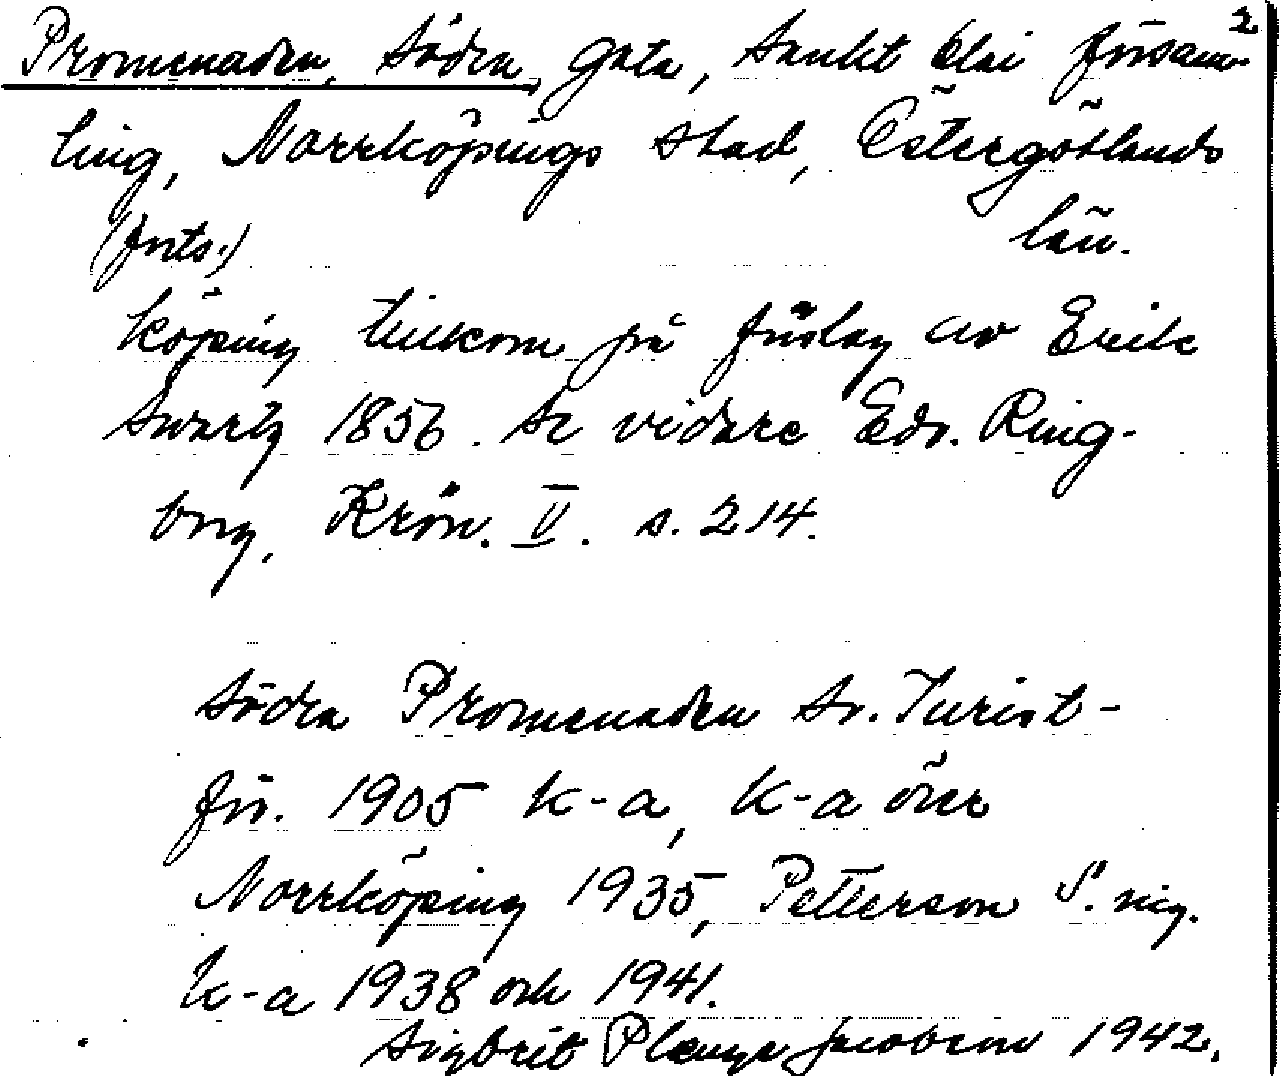 2
Promenaden, Södra, gata, Sankt Olai försam-
ling, Norrköpings stad, Östergötlands
(forts.) län.
köping tillkom på förslag av Erik
Swartz 1856. Se vidare Edv. Ring-
borg, Krön. V. s. 214.
Södra Promenaden Sv. Turist-
för. 1905 k-a, K-a över
Norrköping 1935, Petterson S. nig.
k-a 1938 och 1941.
Sigbrit Plænge Jacobson 1942.